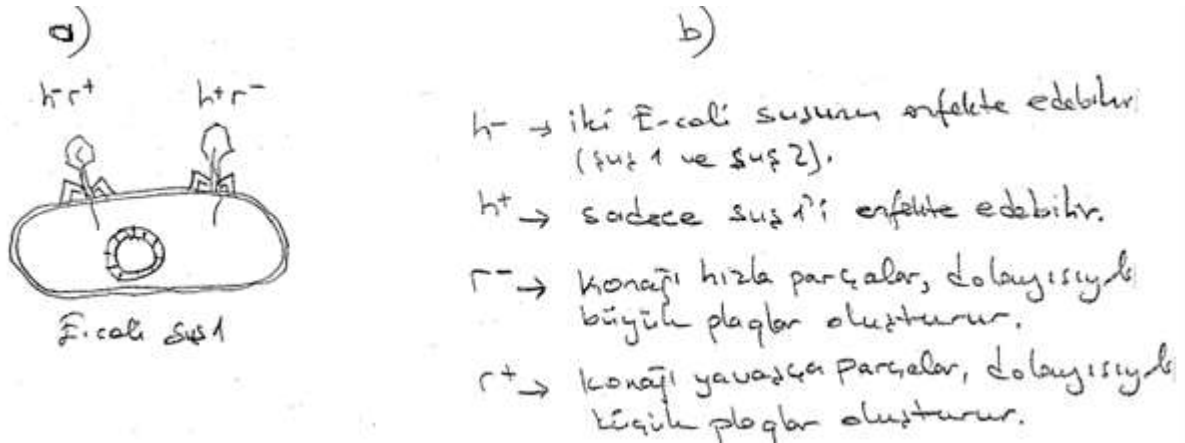 a)
h⁻r⁺ h⁺r⁻
E.coli suş 1
b)
h⁻ → iki E-coli suşunu enfekte edebilir
(suş 1 ve suş 2).
h⁺ → sadece suş 1'i enfekte edebilir.
r⁻ → Konağı hızla parçalar, dolayısıyla
büyük plaqlar oluşturur.
r⁺ → konağı yavaşça parçalar, dolayısıyla
küçük plaqlar oluşturur.